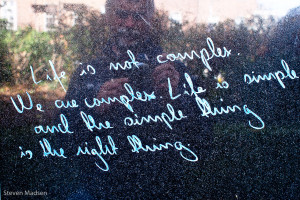 Life is not complex.
We are complex. Life is simple
and the simple thing
is the right thing.
Steven Madsen